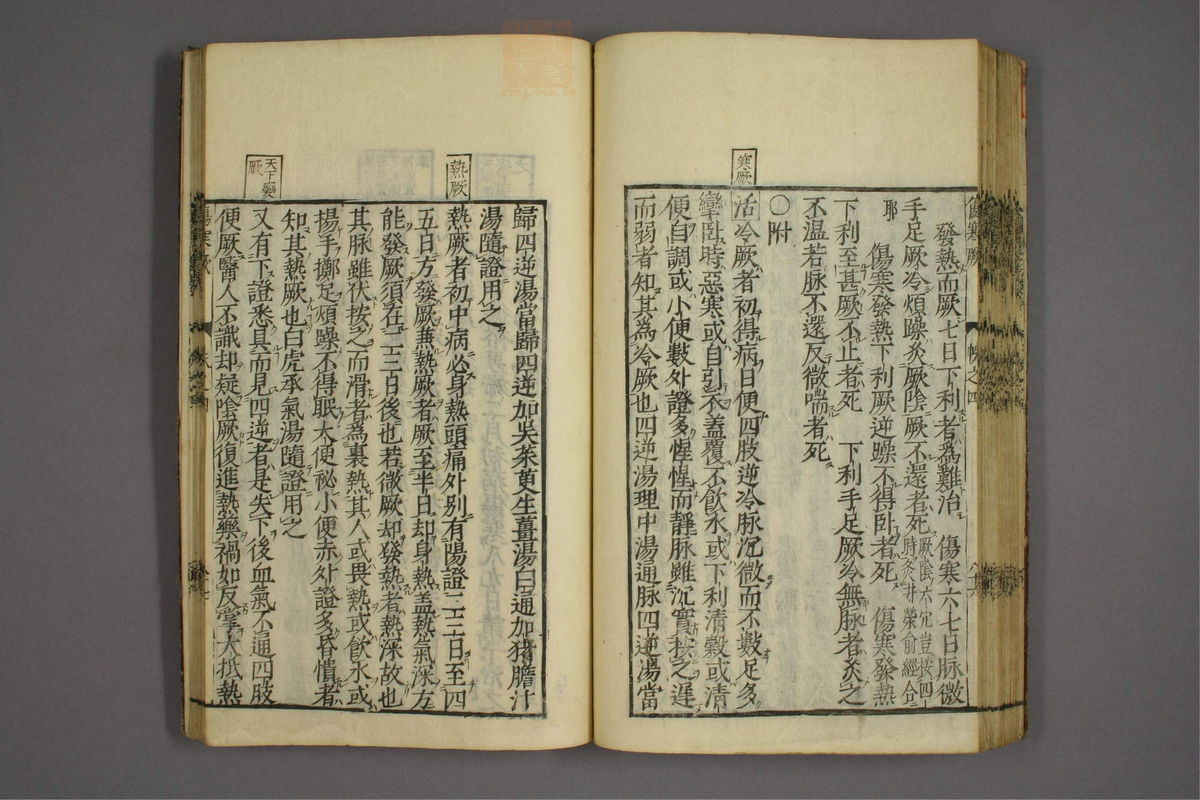 發熱而厥七日下利者爲難治　傷寒六七日脉微
手足厥冷煩躁灸厥陰厥不還者死厥陰六穴豈擇四時灸井滎俞經合
耶　傷寒發熱下利厥逆躁不得臥者死　傷寒發熱
下利至甚厥不止者死　下利手足厥冷無脉者灸之
不溫若脉不還反微喘者死
○附
寒厥
活冷厥者初得病日便四肢逆冷脉沉微而不數足多
攣臥時惡寒或自引衣蓋覆不飲水或下利清穀或清
便自調或小便數外證多惺惺而靜脉雖沉實按之遲
而弱者知其爲冷厥也四逆湯理中湯通脉四逆湯當
歸四逆湯當歸四逆加吳茱萸生薑湯白通加猪膽汁
湯隨證用之
熱厥
熱厥者初中病必身熱頭痛外别有陽證二三日至四
五日方發厥兼熱厥者厥至半日却身熱盖熱氣深方
能發厥須在二三日後也若微厥却發熱者熱深故也
其脉雖伏按之而滑者爲裏熱其人或畏熱或飲水或
揚手擲足煩躁不得眠大便祕小便赤外證多昏憒者
知其熱厥也白虎承氣湯隨證用之
失下變厥
又有下證悉具而見四逆者是失下後血氣不通四肢
便厥醫人不識却疑陰厥復進熱藥禍如反掌大抵熱